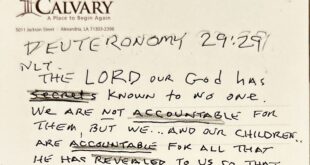 CALVARY
A Place to Begin Again
5011 Jackson Street • Alexandria, LA 71303-2396
DEUTERONOMY 29:29
NLT.
THE LORD OUR GOD HAS
secrets KNOWN TO NO ONE.
WE ARE NOT ACCOUNTABLE FOR
THEM, BUT WE... AND OUR CHILDREN..
ARE ACCOUNTABLE FOR ALL THAT
HE HAS REVEALED TO US SO THAT